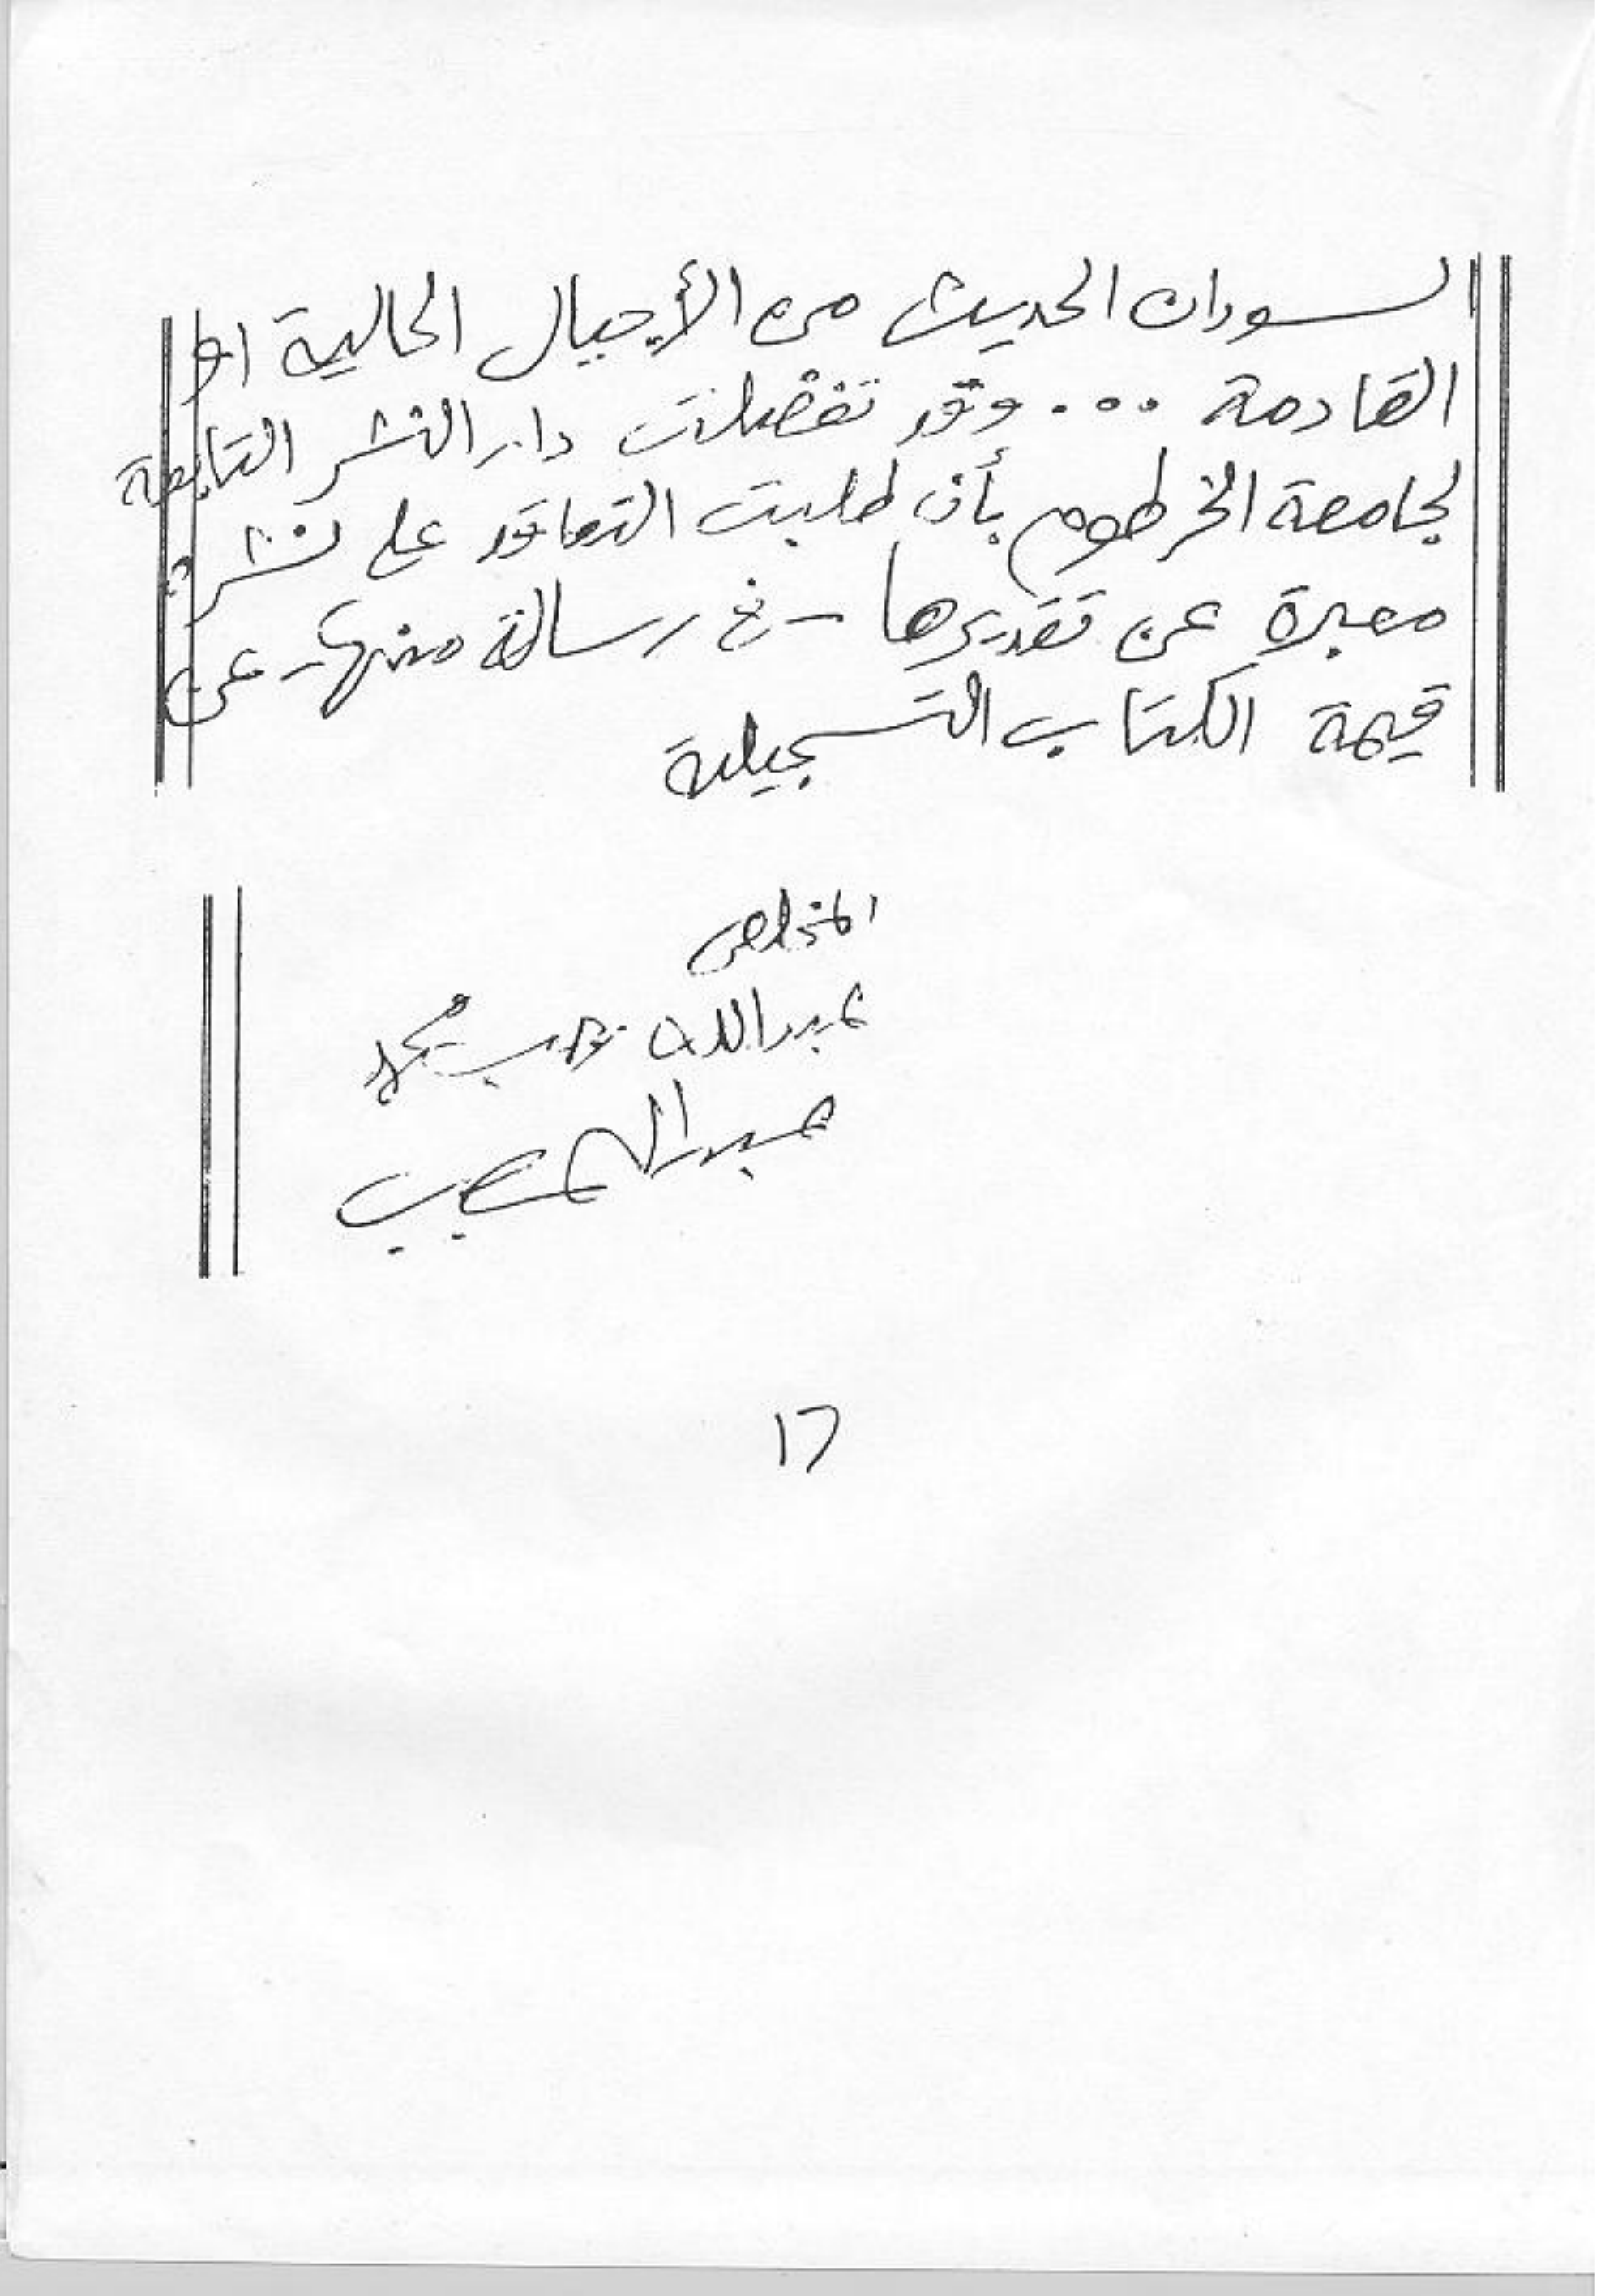 السودان الحديث من الأجيال الحالية او
القادمة ... وقد تفضلت دار النشر التابعة
لجامعة الخرطوم بأن طلبت التعاقد على نشره
معبرة عن تقديرها - في رسالة منها - عن
قيمة الكتاب التسجيلية
المخلص
عبدالله رجب محمد
١٦